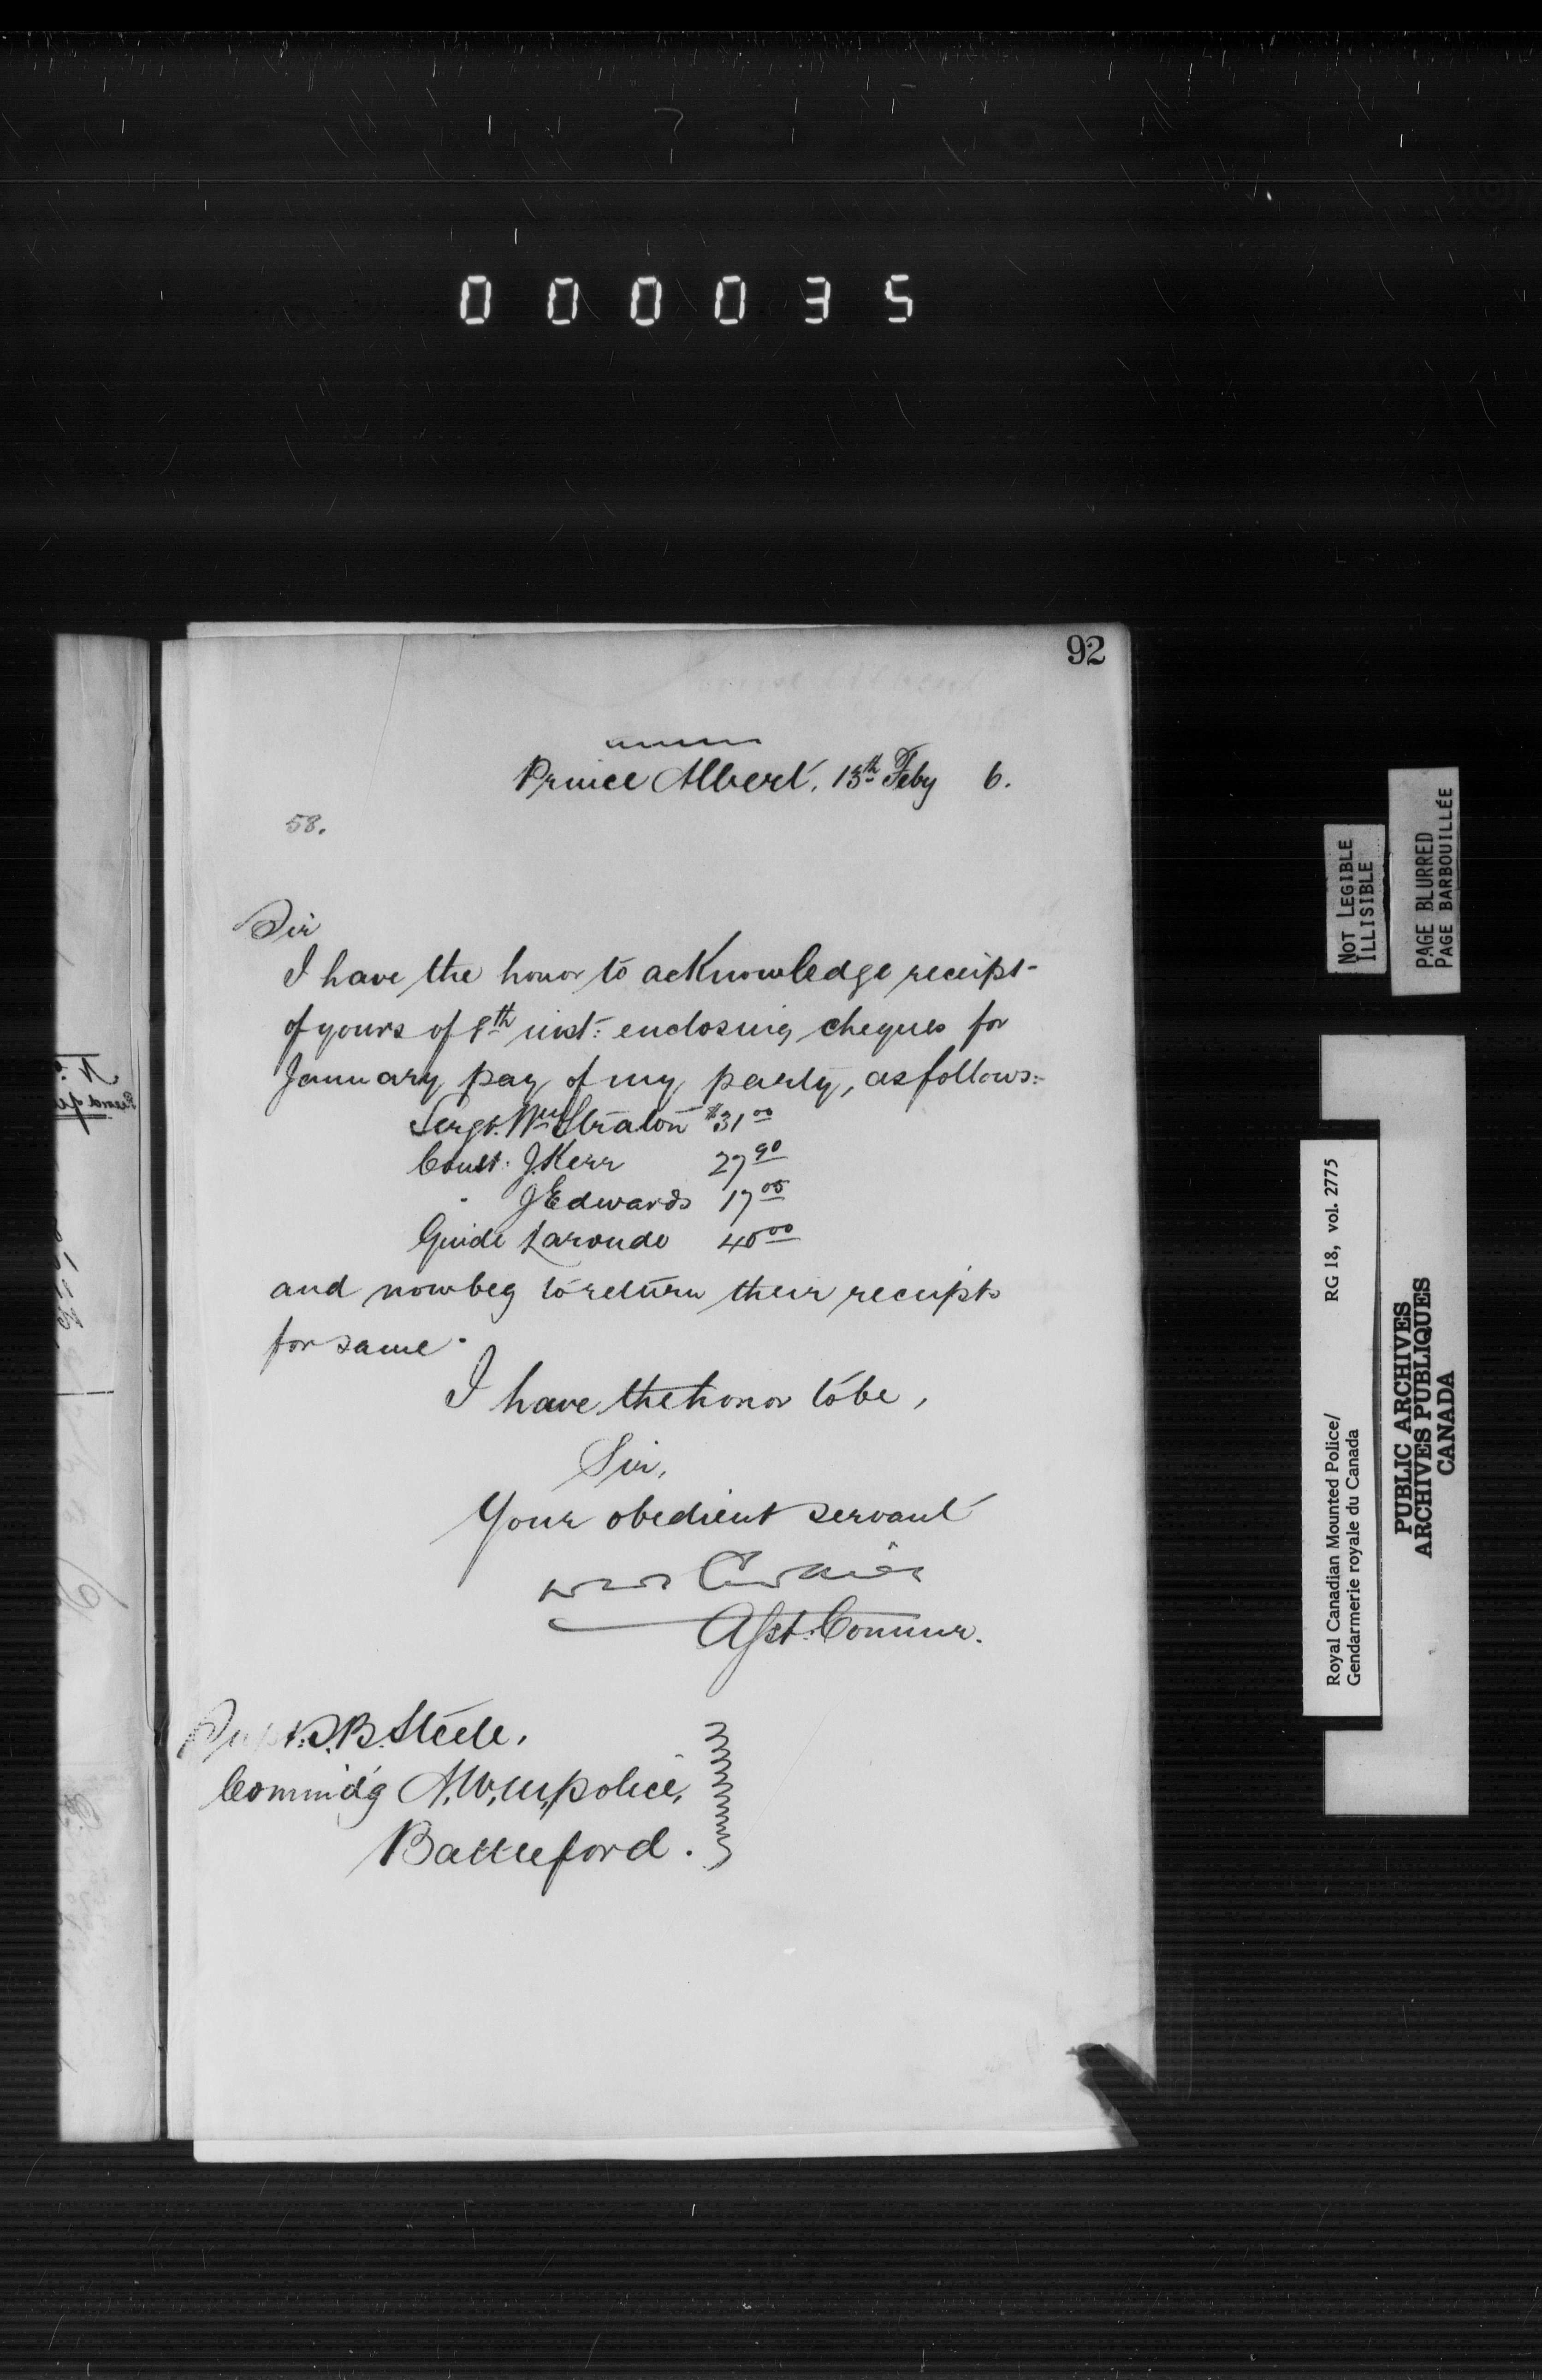 000035
92
Prince Albert, 13th Feby 6.
58.
Sir
I have the honor to acknowledge receipt
of yours of 8th inst: enclosing cheques for
January pay of my party, as follows:-
Sergt. Wm Straton $31 00
Const: J. Kerr 27 90
" J Edwards 17 05
Guide Laronde 40 00
and now beg to return their receipts
for same.
I have the honor to be,
Sir,
Your obedient servant
Asst. Commr.
Supt. S.B. Steele,
Commd'g N.W.M. police,
Battleford.
NOT LEGIBLE
ILLISIBLE
PAGE BLURRED
PAGE BARBOUILLÉE
Royal Canadian Mounted Police/ RG 18, vol. 2775
Gendarmerie royale du Canada
PUBLIC ARCHIVES
ARCHIVES PUBLIQUES
CANADA